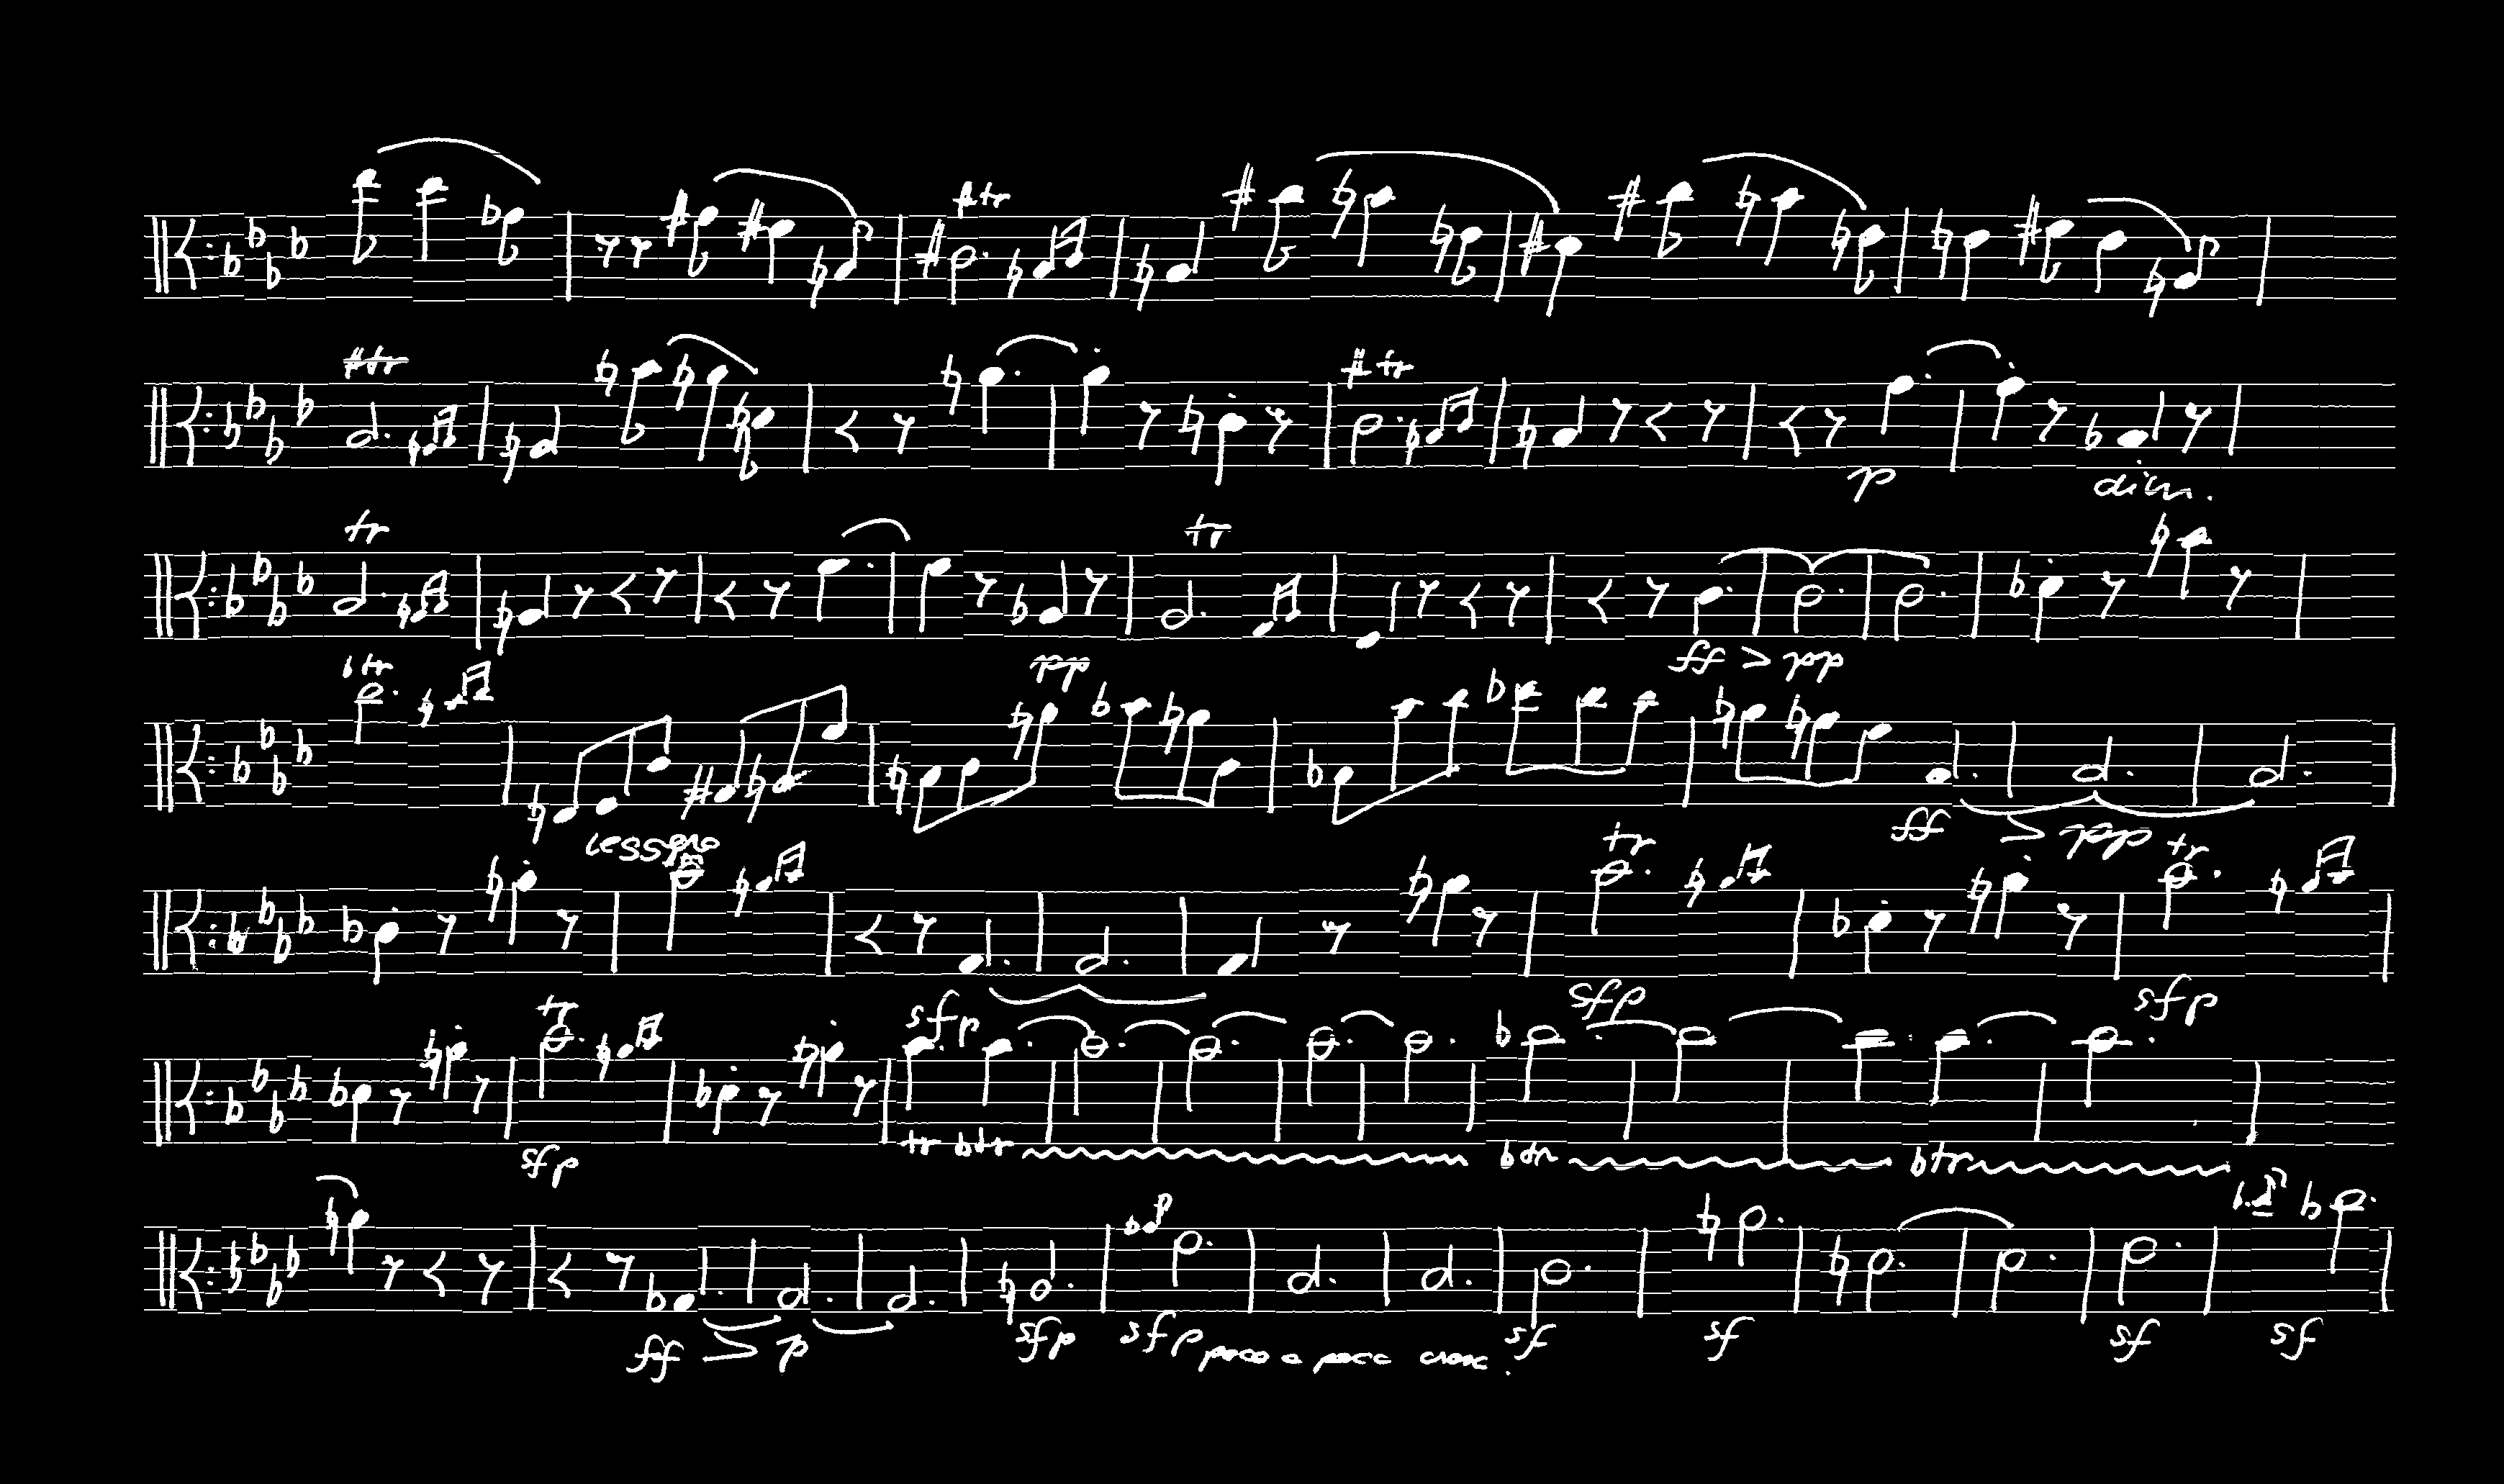 tr
tr tr
p dim.
tr tr
ff > pp
tr pp
ff > ppp
tr tr
sfp sfp sfp
tr
sfp
tr tr tr tr
ff > p sfp sfp poco a poco cresc. sf sf sf sf